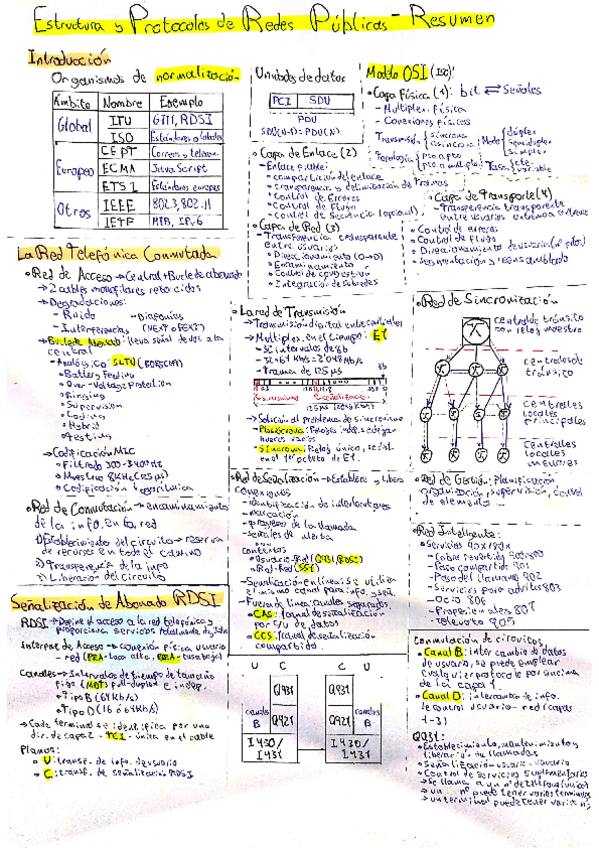 Estructura y Protocolos de Redes Públicas - Resumen
Introducción
Organismos de normalización
Ámbito Nombre Ejemplo
Global ITU GTII, RDSI
ISO Estándares globales
Europeo CEPT Correos y telecom.
ECMA JavaScript
ETSI Estándares europeos
Otros IEEE 802.3, 802.11
IETF IPv6
Unidades de datos
PCI SDU
PDU
SDU(N-1)=PDU(N)
Modelo OSI (ISO):
Capa Física (1): bit ⇄ Señales
- Multiplex. física
- Conexiones físicas
Transmisión síncrona asíncrona Modo dúplex semiduplex simplex
Topología pto a pto pto a multiplo Tasa cte. variable
Capa de Enlace (2)
- Enlace fiable:
- compartición del enlace
- transparencia y delimitación de tramas
- Control de Errores
- Control de Flujo
- Control de Secuencia (opcional)
Capa de Red (3)
- Transferencia transparente
entre usuarios
- Direccionamiento
- Encaminamiento
- Control de congestión
- Integración de subredes
Capa de Transporte (4)
- Transferencia transparente
entre usuarios extremo a extremo
- Control de errores
- Control de Flujo
- Direccionamiento de usuario
- Segmentación y reensamblado
La Red Telefónica Conmutada
Red de Acceso → Central + Bucle de abonado
→ 2 cables monofilares retorcidos
→ Degradaciones:
- Ruido - Diafonías
- Interferencias (NEXT o FEXT)
→ Bucle de Abonado: lleva señal de us. a la
central
- Analógico: SLTU (BORSCHT)
Battery Feeding
Over-Voltage Protection
Ringing
Supervision
Coding
Hybrid
Testing
→ Codificación MIC
Filtrado 300-3400Hz
Muestreo 8KHz (125 μs)
Codificación logarítmica
Red de Conmutación → encaminamiento
de la info. en la red
1) Establecimiento del circuito → reserva
de recursos en todo el camino
2) Transferencia de la info
3) Liberación del circuito
La red de Transmisión
→ Transmisión digital entre centrales
→ Multiplex. en el tiempo: E1
- 32 intervalos de 8b
- 32·64 Kb/s = 2'048 Mb/s
- Trama de 125 μs
→ Solución al problema de sincronismo
- Plesiócrona: Relojes indep. cada
- Síncrona: Reloj único, señal
en el 1er octeto de E1.
Red de Sincronización
central de tránsito
con reloj maestro
centrales de
tránsito
centrales
locales
principales
centrales
locales
menores
Red de Señalización → Establece y libera
conexiones
- identificación de interlocutores
- marcación
- progreso de la llamada
- señales de alerta
Contextos
Usuario-Red (Q931 RDSI)
Red-Red (SS7)
- Señalización en línea: se utiliza
el mismo canal para info. y señ.
- Fuera de línea: canales separados
CAS: 1 canal de señalización
por c/u de datos
CCS: 1 canal de señalización
compartido.
Red de Gestión: Planificación
organización, supervisión, control
de elementos ...
Red Inteligente:
Servicios 90x/80x
- Cobro revertido 900/800
- Pago compartido 901
- Pago del llamante 902
- Servicios para adultos 803
- Ocio 806
- Profesionales 807
- Televoto 905
Señalización de Abonado RDSI
RDSI → Define el acceso a la red telefónica y
proporciona servicios
Interfaz de Acceso → conexión física usuario
- red (PRA → tasa alta, BRA → tasa baja)
Canales → Intervalos de tiempo de tamaño
fijo (MDT) full-duplex e indep.
Tipo B (64 Kb/s)
Tipo D (16 ó 64 Kb/s)
→ Cada terminal se identifica por una
dir. de capa 2 - TCI - única en el cable
Planos:
U: transf. de info. de usuario
C: transf. de señalización RDSI
U C C U
Q931 Q931
canales B Q921 Q921 canales B
I430/I431 I430/I431
Conmutación de circuitos
Canal B: intercambio de datos
de usuario, se puede emplear
cualquier protocolo por encima
de la capa 1.
Canal D: intercambio de info.
de control usuario-red (capas
1-3)
Q931:
Establecimiento, mantenimiento y
liberación de llamadas
Señalización usuario-usuario
Control de servicios suplementarios
→ Se llama a un nº de teléfono (único)
→ un nº puede tener varios terminales
→ un terminal puede tener varios nº